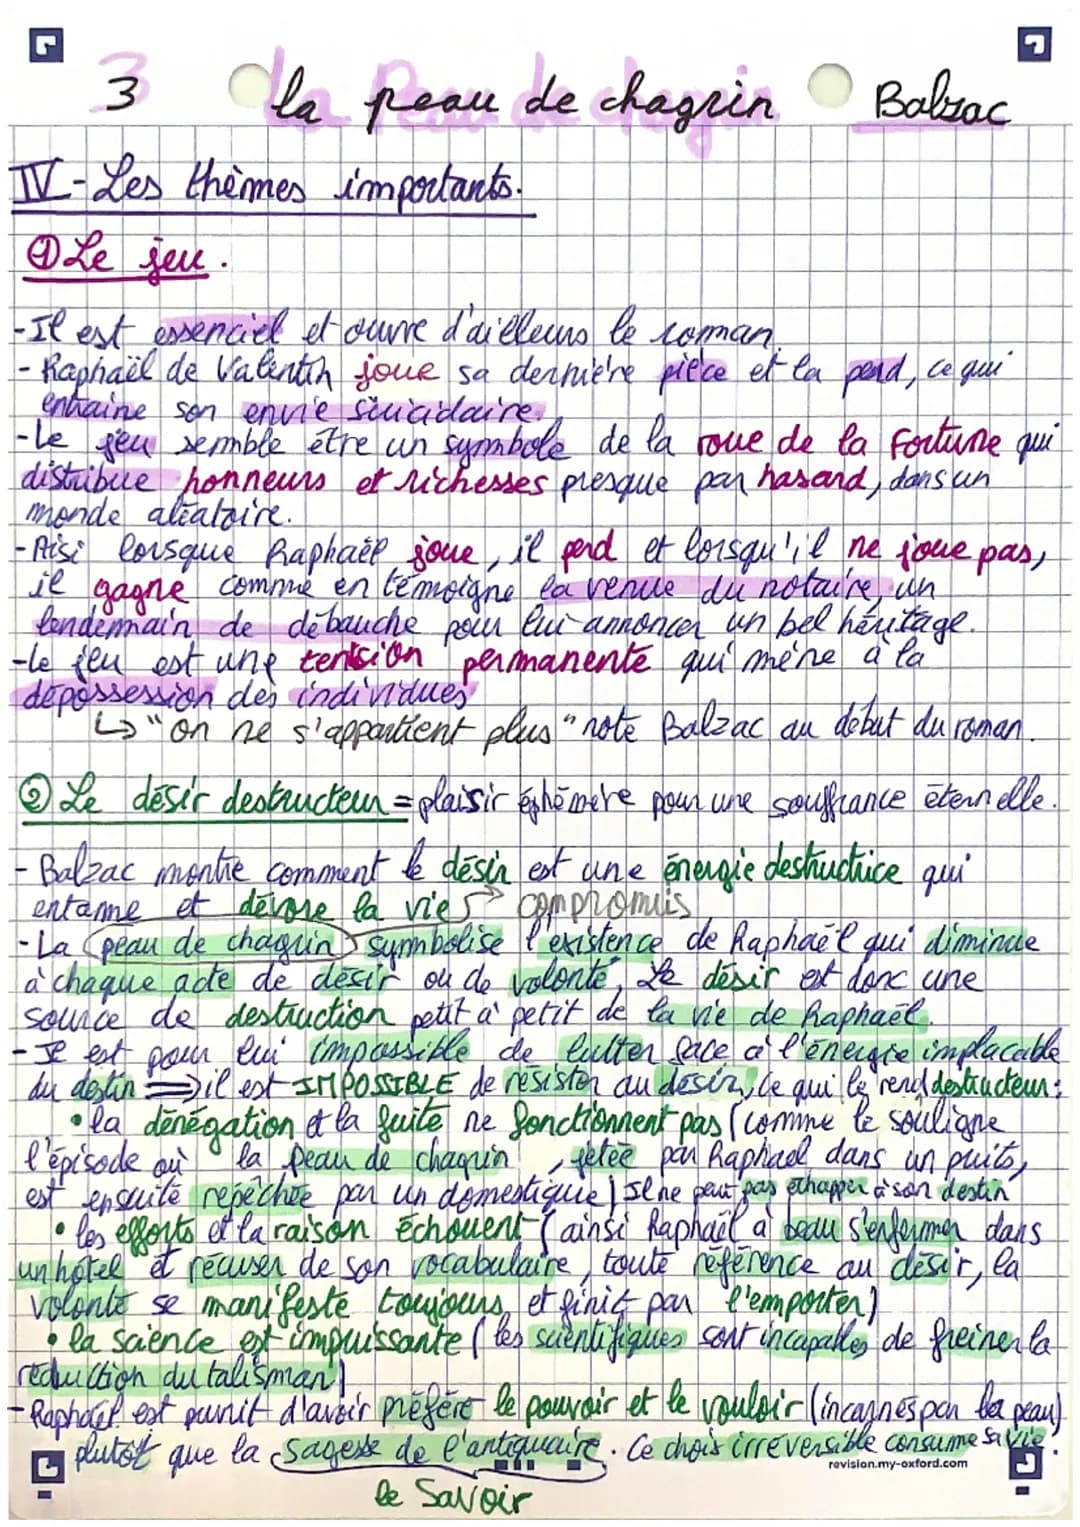 3 la peau de chagrin Balzac
IV - Les thèmes importants.
① Le jeu.
- Il est essenciel et ouvre d'ailleurs le roman.
- Raphaël de Valentin joue sa dernière pièce et la perd, ce qui
entraine son envie suicidaire.
- Le jeu semble être un symbole de la roue de la Fortune qui
distribue honneurs et richesses presque par hasard, dans un
monde aléatoire.
- Aisi lorsque Raphaël joue, il perd et lorsqu'il ne joue pas,
il gagne comme en témoigne la venue du notaire, un
lendemain de débauche pour lui annoncer un bel héritage.
- Le jeu est une tension permanente qui mène à la
dépossession des individues
↳ "on ne s'appartient plus" note Balzac au début du roman.
② Le désir destructeur = plaisir éphémère pour une souffrance éternelle.
- Balzac montre comment le désir est une énergie destructrice qui
entame et dévore la vie → compromis
- La peau de chagrin symbolise l'existence de Raphaël qui diminue
à chaque acte de désir ou de volonté. Le désir est donc une
source de destruction petit à petit de la vie de Raphaël.
- Il est pour lui impossible de lutter face à l'énergie implacable
du destin ⇒ il est IMPOSSIBLE de résister au désir, ce qui le rend destructeur :
• la dénégation et la fuite ne fonctionnent pas (comme le souligne
l'épisode où la peau de chagrin, jetée par Raphael dans un puits,
est ensuite repêchée par un domestique) Il ne peut pas échapper à son destin
• les efforts et la raison échouent (ainsi Raphaël a beau s'enfermer dans
un hôtel et récuser de son vocabulaire, toute référence au désir, la
volonté se manifeste toujours et finit par l'emporter)
• la science est impuissante (les scientifiques sont incapables de freiner la
réduction du talisman)
- Raphaël est punit d'avoir préféré le pouvoir et le vouloir (incarnés par la peau)
plutôt que la sagesse de l'antiquaire. Ce choix irréversible consumme sa vie.
revision.my-oxford.com
le Savoir